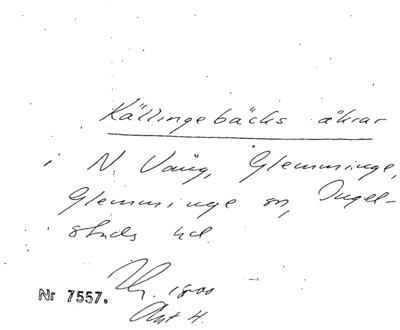 Källingebäcks åkrar
i N. Vång, Glemminge,
Glemminge sn, Ingel-
stads hd.
Nr 7557.
Akt 4.